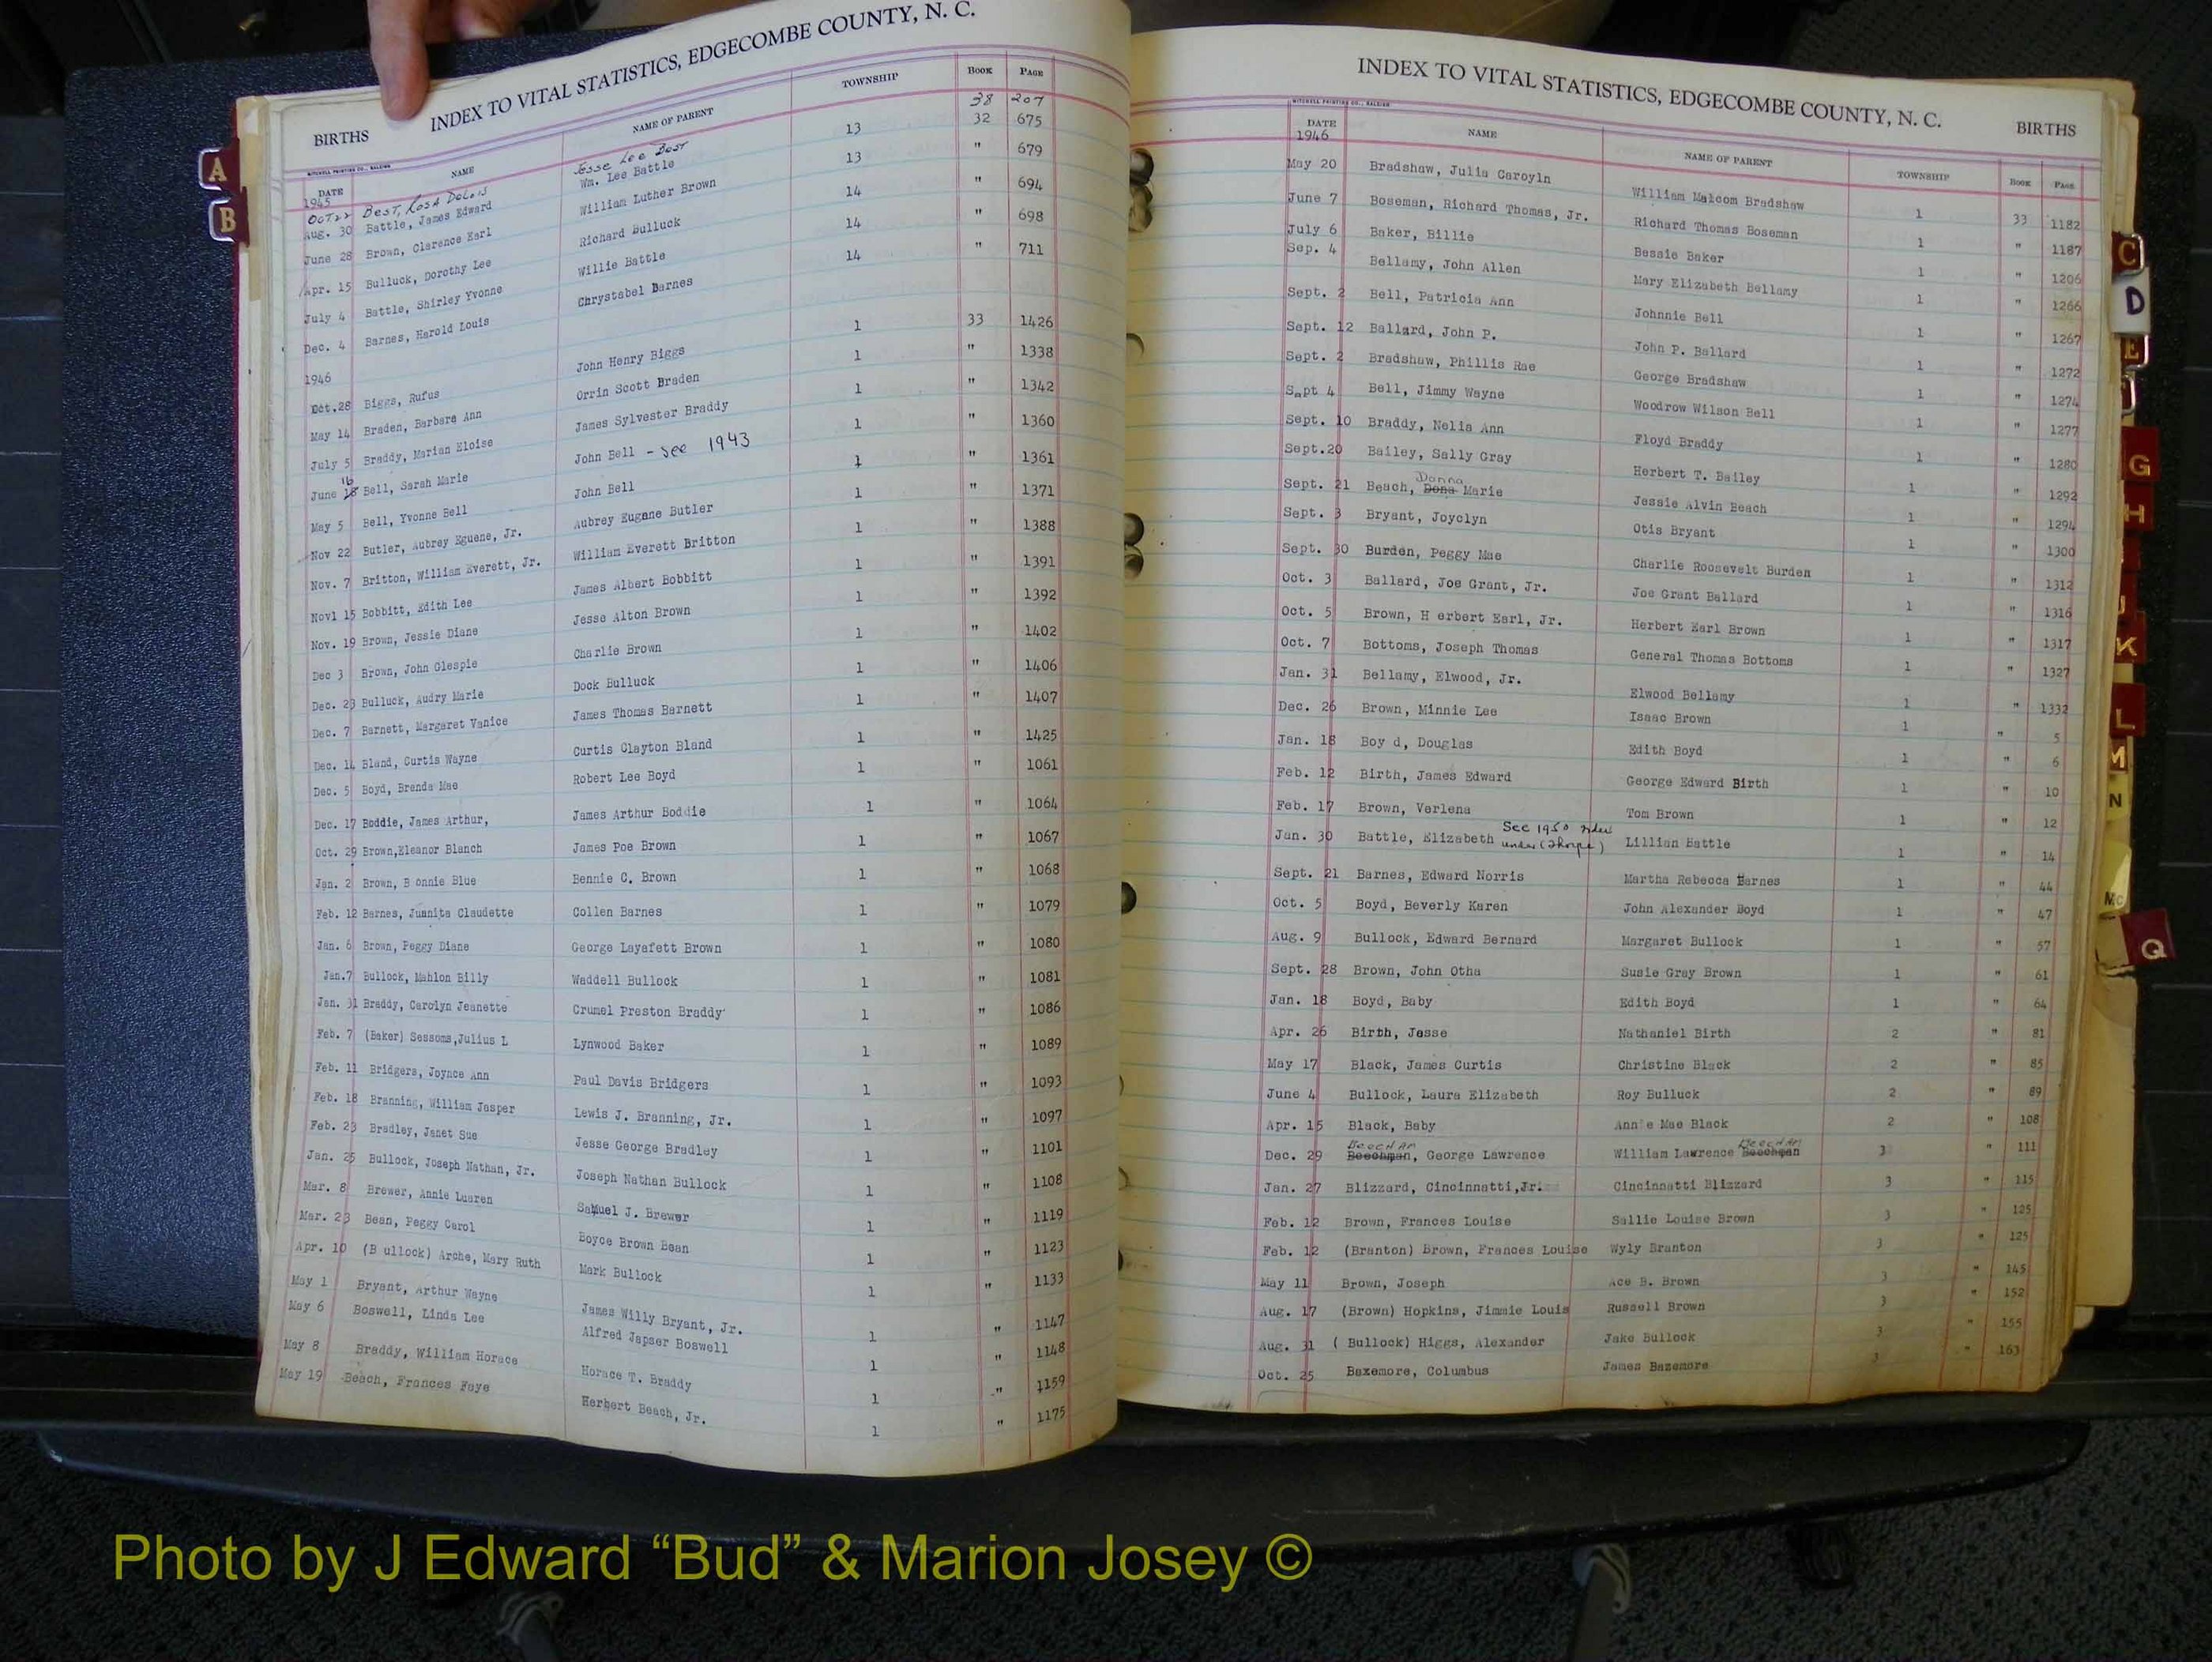 INDEX TO VITAL STATISTICS, EDGECOMBE COUNTY, N. C.
BIRTHS
MITCHELL PRINTING CO., RALEIGH
DATE NAME NAME OF PARENT TOWNSHIP BOOK PAGE
1945
Oct 22 Best, Rosa Delois Jesse Lee Best 38 207
Aug. 30 Battle, James Edward Wm. Lee Battle 13 32 675
June 28 Brown, Clarence Earl William Luther Brown 13 " 679
Apr. 15 Bulluck, Dorothy Lee Richard Bulluck 14 " 694
July 4 Battle, Shirley Yvonne Willie Battle 14 " 698
Dec. 4 Barnes, Harold Louis Chrystabel Barnes 14 " 711
1946
Oct.28 Biggs, Rufus John Henry Biggs 1 33 1426
May 14 Braden, Barbara Ann Orrin Scott Braden 1 " 1338
July 5 Braddy, Marian Eloise James Sylvester Braddy 1 " 1342
June 16 Bell, Sarah Marie John Bell - See 1943 1 " 1360
May 5 Bell, Yvonne Bell John Bell 1 " 1361
Nov 22 Butler, Aubrey Eguene, Jr. Aubrey Eugene Butler 1 " 1371
Nov. 7 Britton, William Everett, Jr. William Everett Britton 1 " 1388
Novl 15 Bobbitt, Edith Lee James Albert Bobbitt 1 " 1391
Nov. 19 Brown, Jessie Diane Jesse Alton Brown 1 " 1392
Dec 3 Brown, John Glespie Charlie Brown 1 " 1402
Dec. 23 Bulluck, Audry Marie Dock Bulluck 1 " 1406
Dec. 7 Barnett, Margaret Vanice James Thomas Barnett 1 " 1407
Dec. 14 Bland, Curtis Wayne Curtis Clayton Bland 1 " 1425
Dec. 5 Boyd, Brenda Mae Robert Lee Boyd 1 " 1061
Dec. 17 Boddie, James Arthur, James Arthur Boddie 1 " 1064
Oct. 29 Brown,Eleanor Blanch James Poe Brown 1 " 1067
Jan. 2 Brown, B onnie Blue Bennie C. Brown 1 " 1068
Feb. 12 Barnes, Juanita Claudette Collen Barnes 1 " 1079
Jan. 6 Brown, Peggy Diane George Layafett Brown 1 " 1080
Jan.7 Bullock, Mahlon Billy Waddell Bullock 1 " 1081
Jan. 31 Braddy, Carolyn Jeanette Crumel Preston Braddy 1 " 1086
Feb. 7 (Baker) Sessoms,Julius L Lynwood Baker 1 " 1089
Feb. 11 Bridgers, Joynce Ann Paul Davis Bridgers 1 " 1093
Feb. 18 Branning, William Jasper Lewis J. Branning, Jr. 1 " 1097
Feb. 23 Bradley, Janet Sue Jesse George Bradley 1 " 1101
Jan. 25 Bullock, Joseph Nathan, Jr. Joseph Nathan Bullock 1 " 1108
Mar. 8 Brewer, Annie Luaren Samuel J. Brewer 1 " 1119
Mar. 23 Bean, Peggy Carol Boyce Brown Bean 1 " 1123
Apr. 10 (B ullock) Arche, Mary Ruth Mark Bullock 1 " 1133
May 1 Bryant, Arthur Wayne James Willy Bryant, Jr. 1 " 1147
May 6 Boswell, Linda Lee Alfred Japser Boswell 1 " 1148
May 8 Braddy, William Horace Horace T. Braddy 1 " 1159
May 19 Beach, Frances Faye Herbert Beach, Jr. 1 " 1175
INDEX TO VITAL STATISTICS, EDGECOMBE COUNTY, N. C.
BIRTHS
MITCHELL PRINTING CO., RALEIGH
DATE NAME NAME OF PARENT TOWNSHIP BOOK PAGE
1946
May 20 Bradshaw, Julia Caroyln William Malcom Bradshaw 1 33 1182
June 7 Boseman, Richard Thomas, Jr. Richard Thomas Boseman 1 " 1187
July 6 Baker, Billie Bessie Baker 1 " 1206
Sep. 4 Bellamy, John Allen Mary Elizabeth Bellamy 1 " 1266
Sept. 2 Bell, Patricia Ann Johnnie Bell 1 " 1267
Sept. 12 Ballard, John P. John P. Ballard 1 " 1272
Sept. 2 Bradshaw, Phillis Rae George Bradshaw 1 " 1274
Sept 4 Bell, Jimmy Wayne Woodrow Wilson Bell 1 " 1277
Sept. 10 Braddy, Nelia Ann Floyd Braddy 1 " 1280
Sept.20 Bailey, Sally Gray Herbert T. Bailey 1 " 1292
Sept. 21 Beach, Dona Donna Marie Jessie Alvin Beach 1 " 1294
Sept. 3 Bryant, Joyclyn Otis Bryant 1 " 1300
Sept. 30 Burden, Peggy Mae Charlie Roosevelt Burden 1 " 1312
Oct. 3 Ballard, Joe Grant, Jr. Joe Grant Ballard 1 " 1316
Oct. 5 Brown, H erbert Earl, Jr. Herbert Earl Brown 1 " 1317
Oct. 7 Bottoms, Joseph Thomas General Thomas Bottoms 1 " 1327
Jan. 31 Bellamy, Elwood, Jr. Elwood Bellamy 1 " 1332
Dec. 26 Brown, Minnie Lee Isaac Brown 1 " 5
Jan. 18 Boy d, Douglas Edith Boyd 1 " 6
Feb. 12 Birth, James Edward George Edward Birth 1 " 10
Feb. 17 Brown, Verlena Tom Brown 1 " 12
Jan. 30 Battle, Elizabeth See 1950 index under (Thorpe) Lillian Battle 1 " 14
Sept. 21 Barnes, Edward Norris Martha Rebecca Barnes 1 " 44
Oct. 5 Boyd, Beverly Karen John Alexander Boyd 1 " 47
Aug. 9 Bullock, Edward Bernard Margaret Bullock 1 " 57
Sept. 28 Brown, John Otha Susie Gray Brown 1 " 61
Jan. 18 Boyd, Baby Edith Boyd 1 " 64
Apr. 26 Birth, Jesse Nathaniel Birth 2 " 81
May 17 Black, James Curtis Christine Black 2 " 85
June 4 Bullock, Laura Elizabeth Roy Bulluck 2 " 89
Apr. 15 Black, Baby Annie Mae Black 2 " 108
Dec. 29 Beechman Beecham, George Lawrence William Lawrence Beechman Beecham 3 " 111
Jan. 27 Blizzard, Cincinnatti,Jr. Cincinnatti Blizzard 3 " 115
Feb. 12 Brown, Frances Louise Sallie Louise Brown 3 " 125
Feb. 12 (Branton) Brown, Frances Louise Wyly Branton 3 " 125
May 11 Brown, Joseph Ace B. Brown 3 " 145
Aug. 17 (Brown) Hopkins, Jimmie Louis Russell Brown 3 " 152
Aug. 31 ( Bullock) Higgs, Alexander Jake Bullock 3 " 155
Oct. 25 Bazemore, Columbus James Bazemore 3 " 163
A
B
C
D
E
G
H
J
K
L
M
N
Mc
Q
Photo by J Edward “Bud” & Marion Josey ©